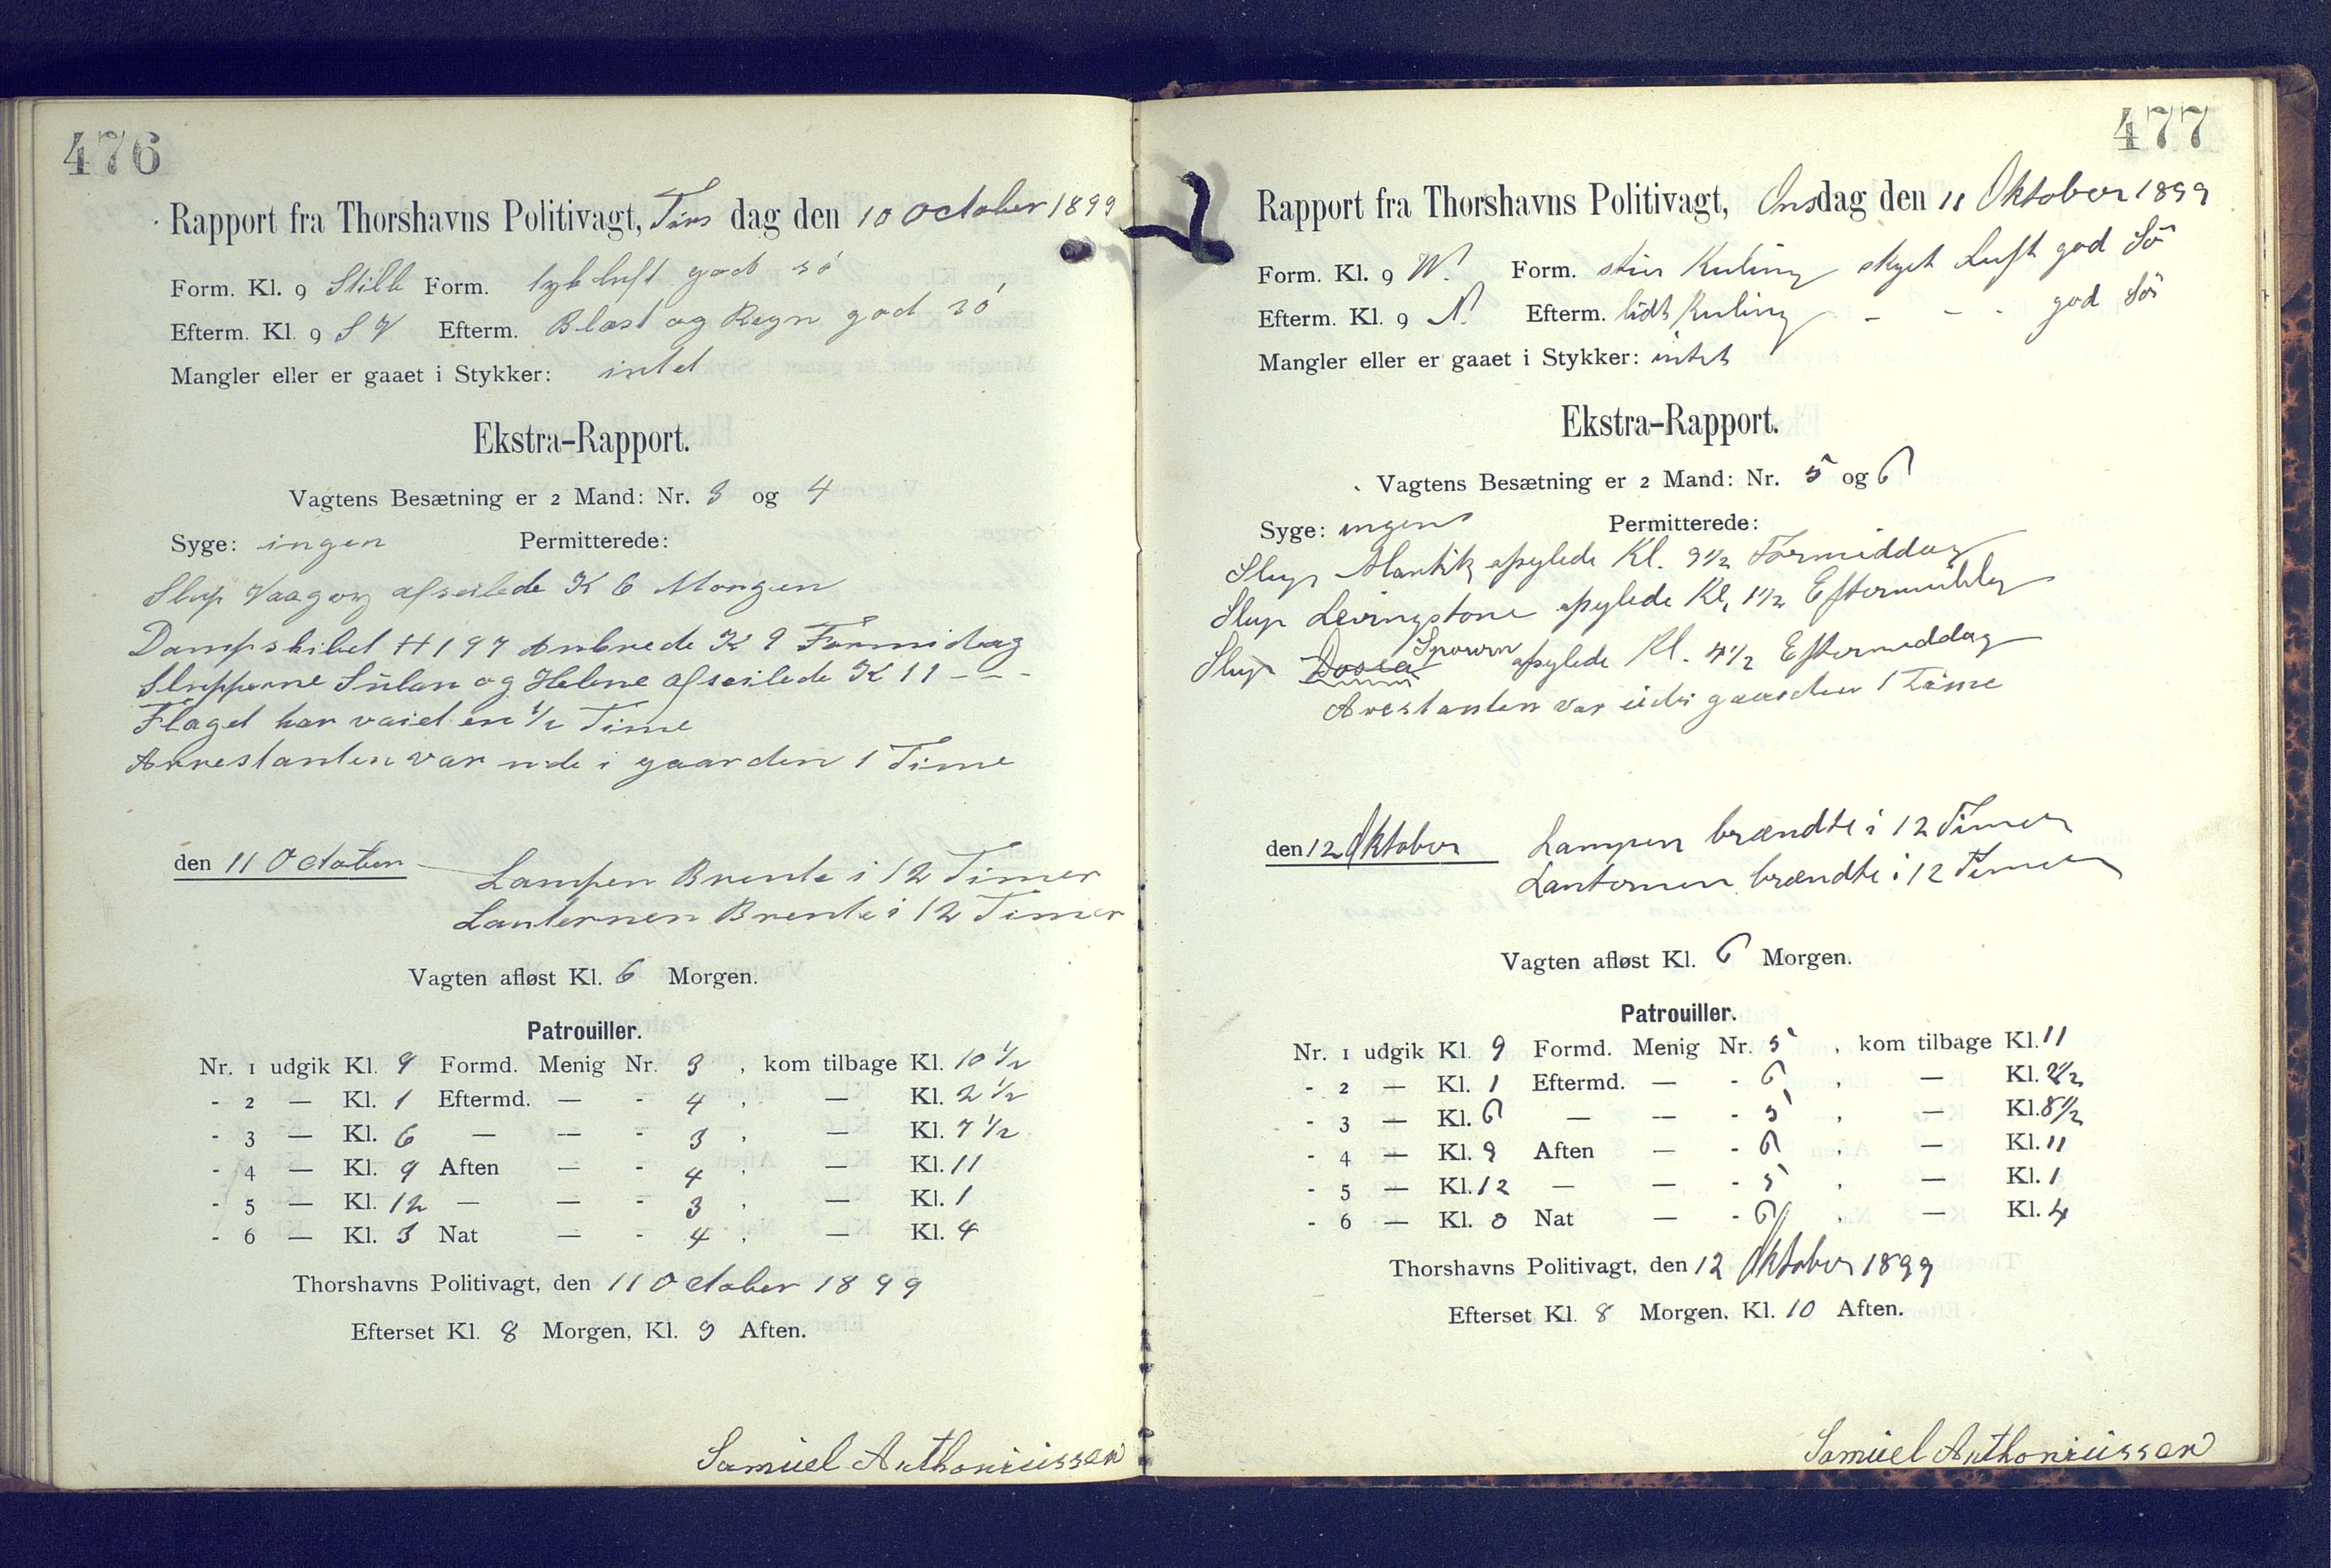 476
Rapport fra Thorshavns Politivagt, Tirs dag den 10 October 1899
Form. Kl. 9 Stille Form. tyk luft god sö
Efterm. Kl. 9 S V Efterm. Blæst og Regn god sö
Mangler eller er gaaet i Stykker: intet
Ekstra-Rapport.
Vagtens Besætning er 2 Mand: Nr. 3 og 4
Syge: ingen Permitterede:
Slup afseilede K 6 Morgen
Dampskibet H 197 Ankrede K 9 Formidag
Slupperne Sulan og Helene afseilede K 11 - - -
Flaget har vaiet en 1/2 Time
Arrestanten var ude i gaarden 1 Time
den 11 October Lampen Brente i 12 Timer
Lanternen Brente i 12 Timer
Vagten afløst Kl. 6 Morgen.
Patrouiller.
Nr. 1 udgik Kl. 9 Formd. Menig Nr. 3 , kom tilbage Kl. 10 1/2
- 2 — Kl. 1 Eftermd. — - 4 , — Kl. 2 1/2
- 3 — Kl. 6 — — - 3 , — Kl. 7 1/2
- 4 — Kl. 9 Aften — - 4 , — Kl. 11
- 5 — Kl. 12 — — - 3 , — Kl. 1
- 6 — Kl. 3 Nat — - 4 , — Kl. 4
Thorshavns Politivagt, den 11 October 1899
Efterset Kl. 8 Morgen, Kl. 9 Aften.
Samuel Anthoniussen
477
Rapport fra Thorshavns Politivagt, Onsdag den 11 Oktober 1899
Form. Kl. 9 W. Form. stiv Kuling skyet Luft god Sö
Efterm. Kl. 9 N. Efterm. lidt Kuling - - - god Sö
Mangler eller er gaaet i Stykker: intet
Ekstra-Rapport.
Vagtens Besætning er 2 Mand: Nr. 5 og 6
Syge: ingen Permitterede:
Slup Atlantik afsylede Kl. 9 1/2 Formiddag
Slup Levingstone afsylede Kl. 1 1/2 Eftermiddag
Slup afsylede Kl. 4 1/2 Eftermeddag
Arestanten var ude i gaarden 1 Time
den 12 Oktober Lampen brændte i 12 Timer
Lanternen brændte i 12 Timer
Vagten afløst Kl. 6 Morgen.
Patrouiller.
Nr. 1 udgik Kl. 9 Formd. Menig Nr. 5 , kom tilbage Kl. 11
- 2 — Kl. 1 Eftermd. — - 6 , — Kl. 2 1/2
- 3 — Kl. 6 — — - 5 , — Kl. 8 1/2
- 4 — Kl. 9 Aften — - 6 , — Kl. 11
- 5 — Kl. 12 — — - 5 , — Kl. 1
- 6 — Kl. 3 Nat — - 6 , — Kl. 4
Thorshavns Politivagt, den 12 Oktober 1899
Efterset Kl. 8 Morgen, Kl. 10 Aften.
Samuel Anthoniussen